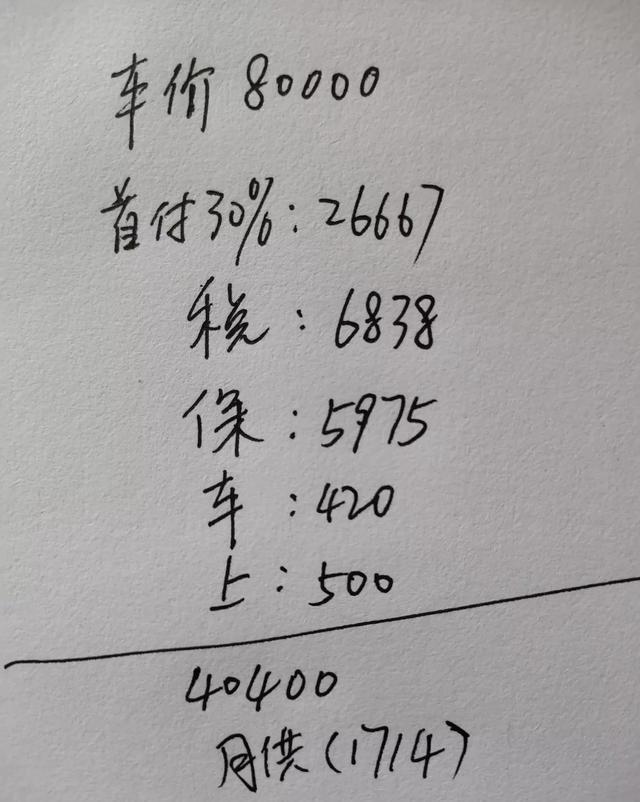 车价 80000
首付30%：26667
税：6838
保：5975
车：420
上：500
40400
月供(1714)